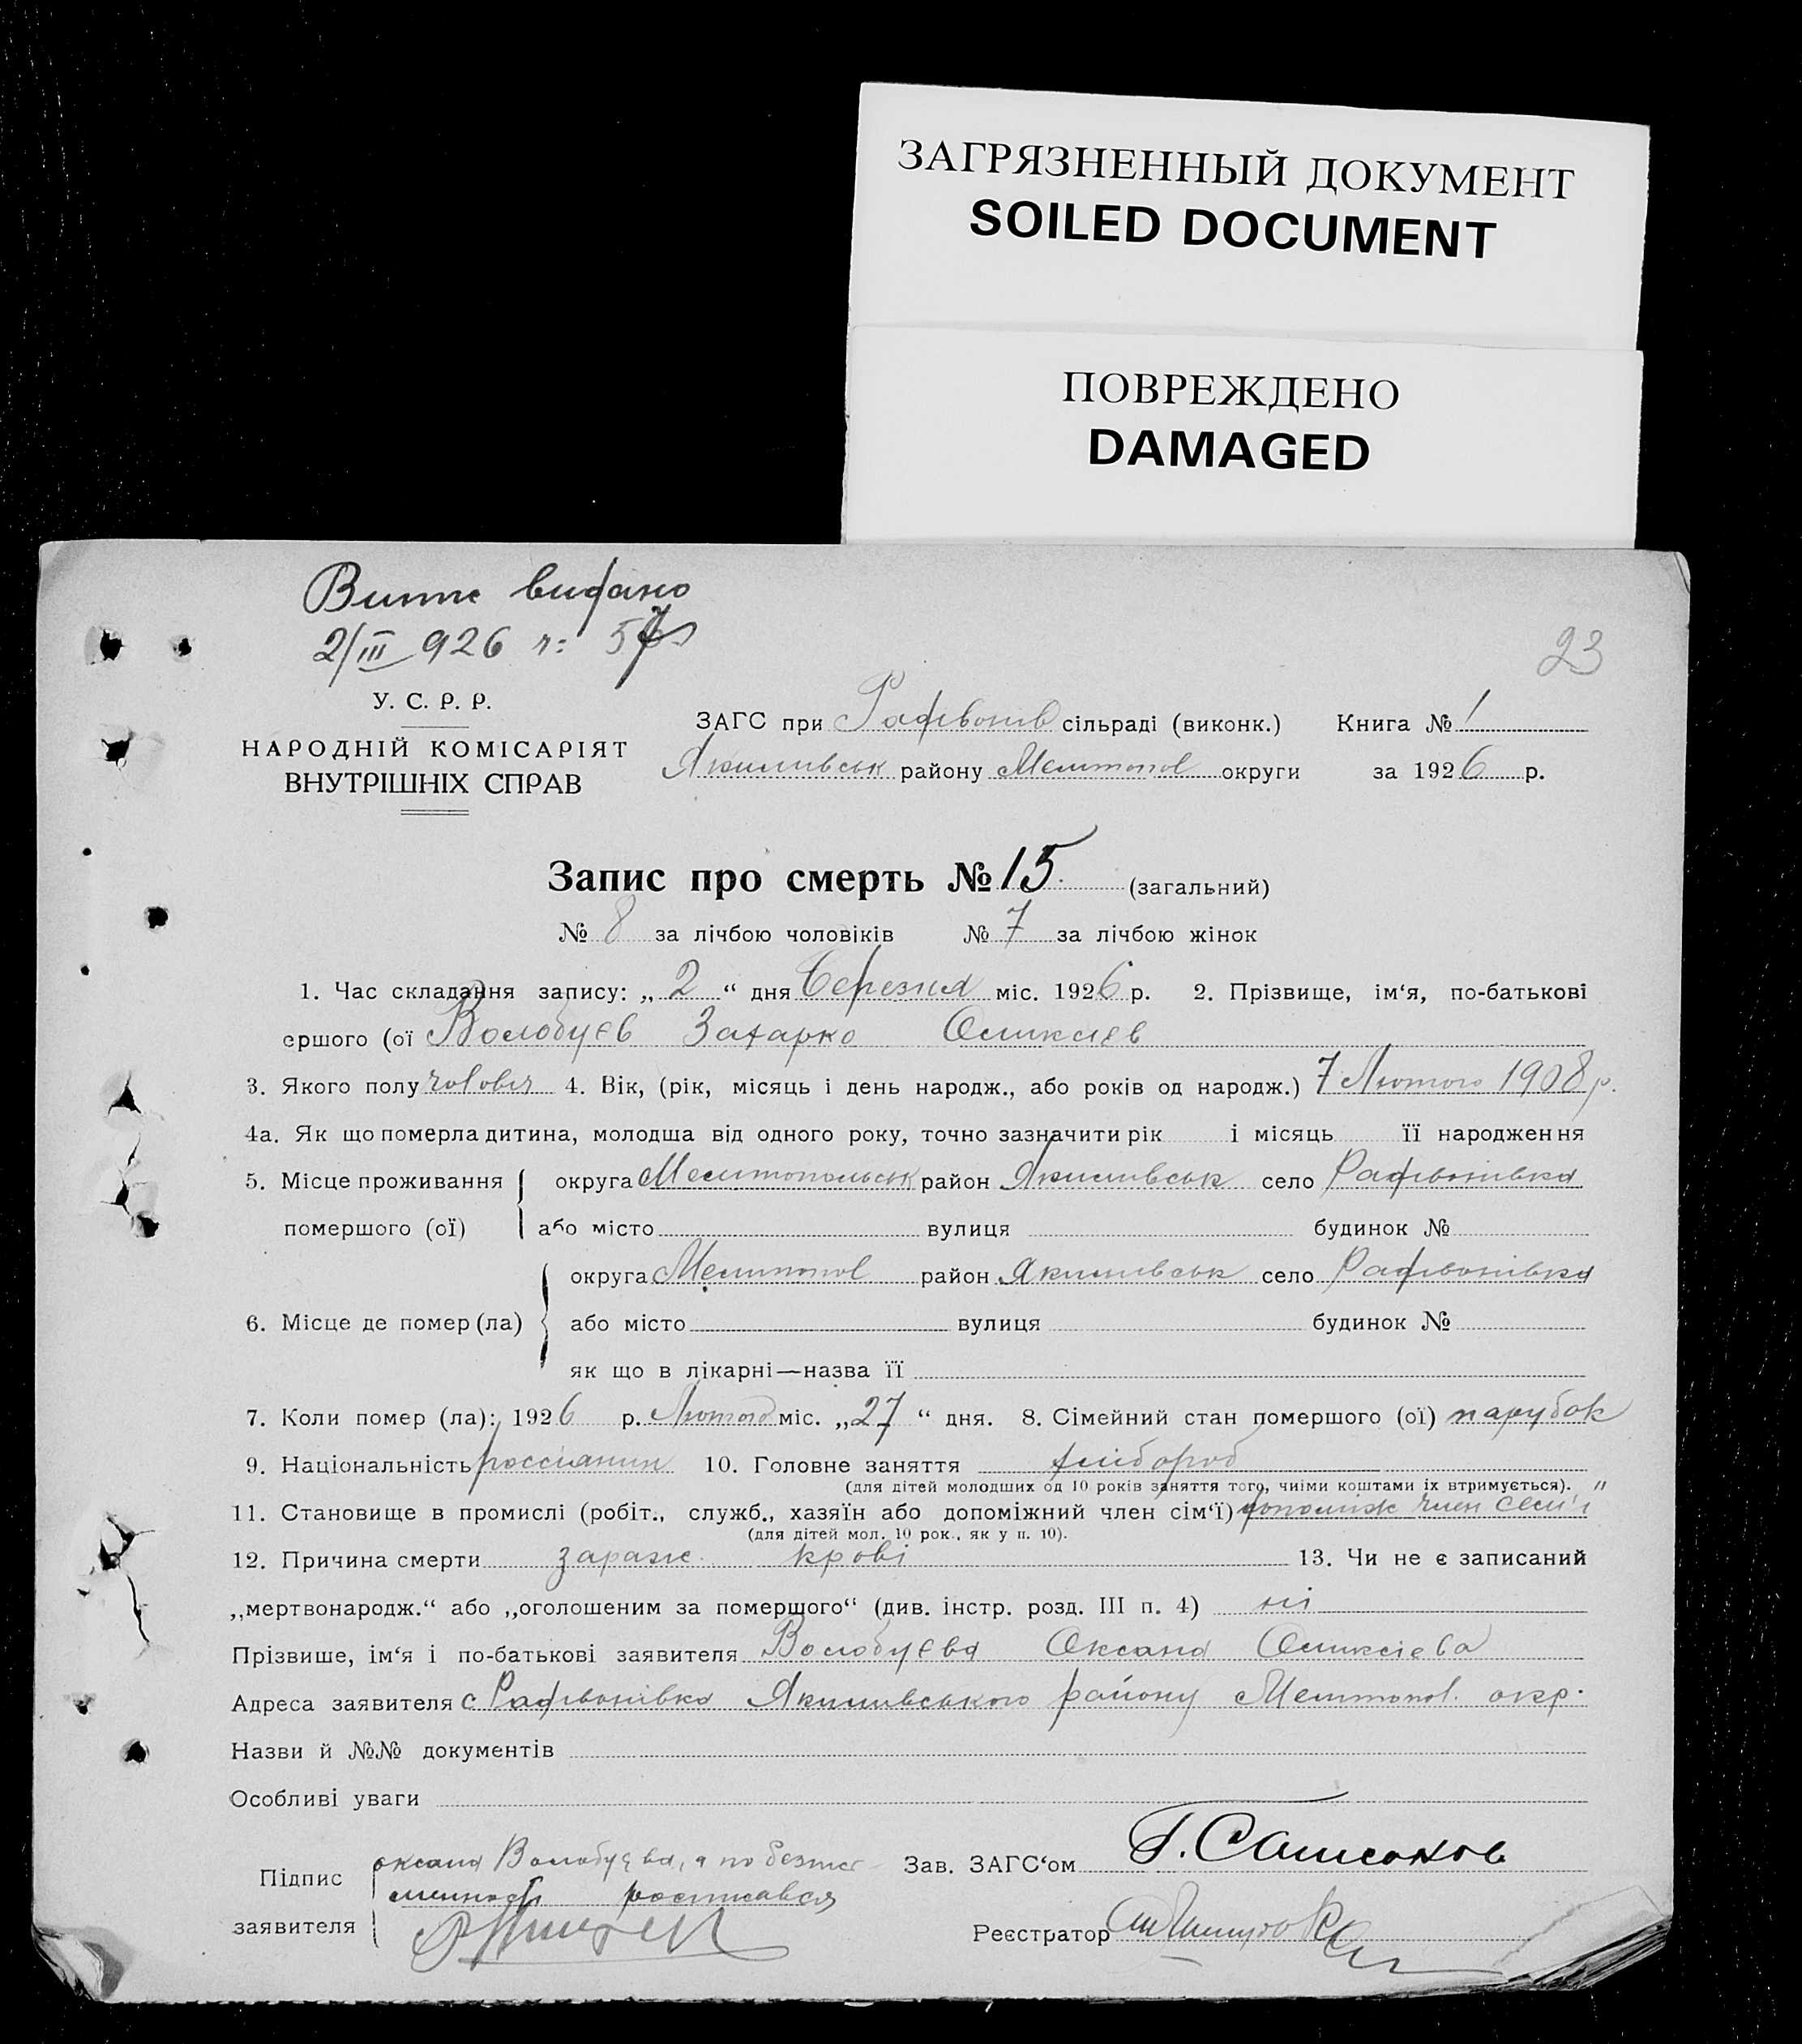 ЗАГРЯЗНЕННЫЙ ДОКУМЕНТ
SOILED DOCUMENT
ПОВРЕЖДЕНО
DAMAGED
видано
2/III 926 р:
23
У. С. Р. Р.
НАРОДНІЙ КОМІСАРІЯТ
ВНУТРІШНІХ СПРАВ
ЗАГС при Радівонів сільраді (виконк.) Книга № 1
Якимівськ району Мелітопол округи за 1926 р.
Запис про смерть № 15 (загальний)
№ 8 за лічбою чоловіків № 7 за лічбою жінок
1. Час складання запису: „ 2 “ дня Березня міс. 1926 р. 2. Прізвище, ім‘я, по-батькові
ершого (ої Волобуєв Захарко Олексієв
3. Якого полу чоловіч 4. Вік, (рік, місяць і день народж., або років од народж.) 7 Лютого 1908 р.
4а. Як що померла дитина, молодша від одного року, точно зазначити рік і місяць її народження
5. Місце проживання округа Мелітопольськ район Якимівськ село Радівонівка
помершого (ої) або місто вулиця будинок №
округа Мелітопол район Якимівськ село Радівонівка
6. Місце де помер (ла) або місто вулиця будинок №
як що в лікарні—назва її
7. Коли помер (ла): 1926 р. Лютого міс. „ 27 “ дня. 8. Сімейний стан помершого (ої) парубок
9. Національність россіянин 10. Головне заняття хлібороб
(для дітей молодших од 10 років заняття того, чиїми коштами їх втримується).
11. Становище в промислі (робіт., служб., хазяїн або допоміжний член сім‘ї) допоміж член семї
(для дітей мол. 10 рок., як у п. 10).
12. Причина смерти зараж. крові 13. Чи не є записаний
„мертвонародж.“ або „оголошеним за помершого“ (див. інстр. розд. III п. 4) ні
Прізвише, ім‘я і по-батькові заявителя Волобуєва Оксана Олексієва
Адреса заявителя с Радівонівка Якимівського району Мелітопол. окр.
Назви й №№ документів
Особливі уваги
Підпис оксана Волобуєва, а по безгра-
мотності
заявителя
Зав. ЗАГС‘ом Г. Самсонов
Реєстратор